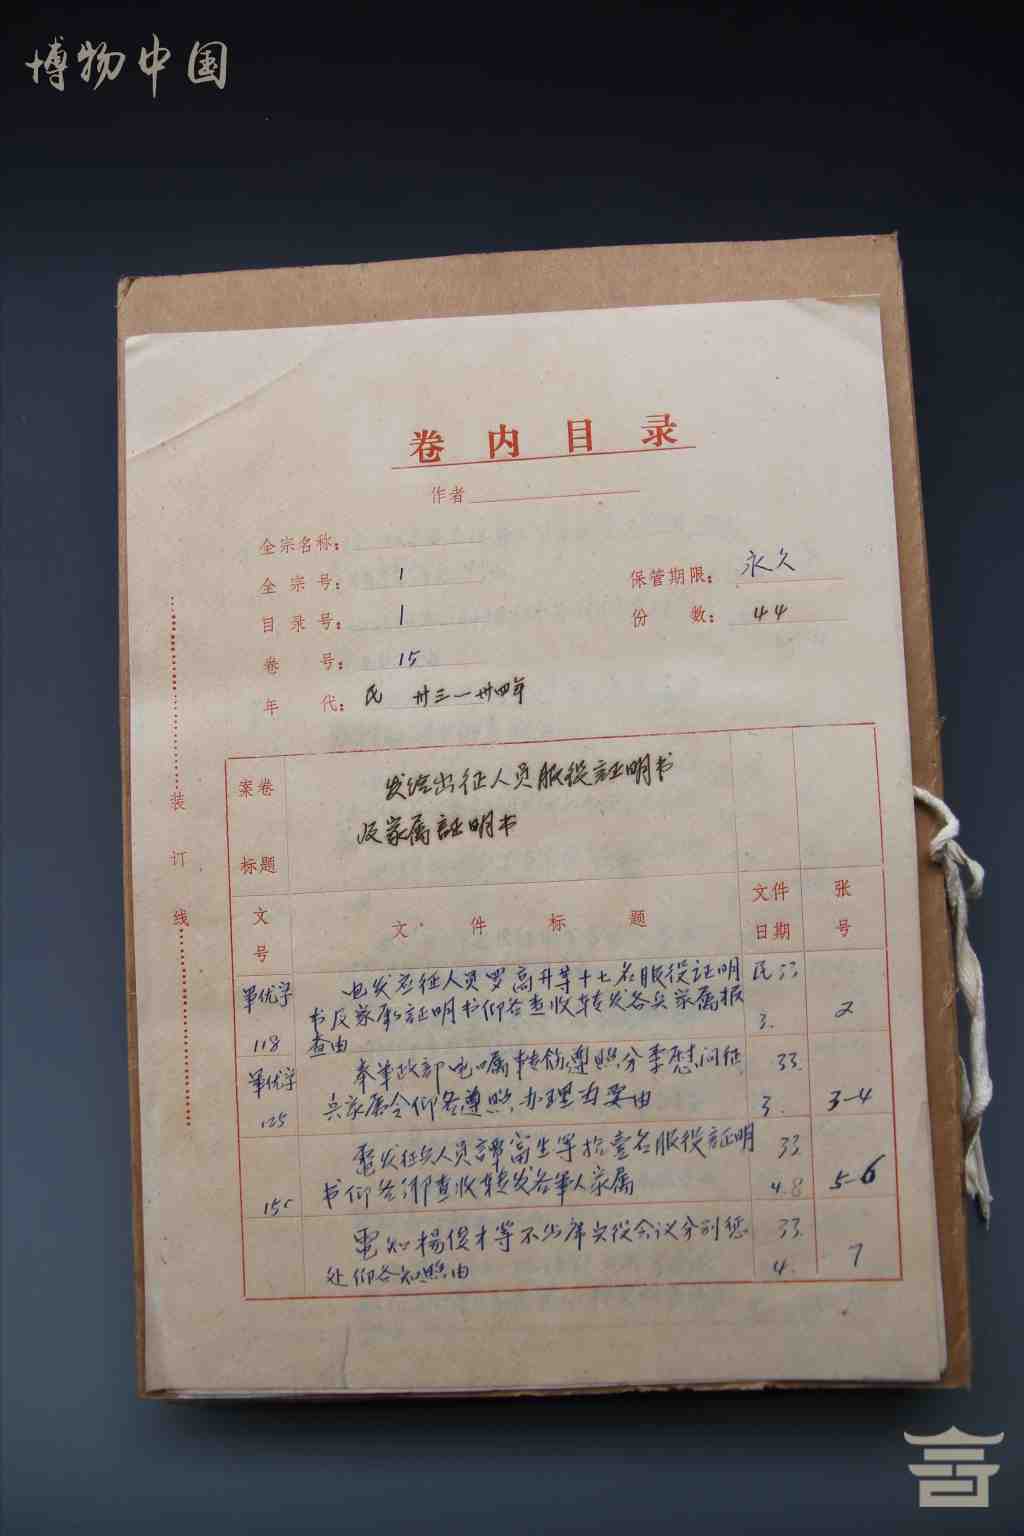 博物中国
卷内目录
作者
全宗名称：
全宗号： 1
保管期限： 永久
目录号： 1
份数： 44
卷号： 15
年代： 民 卅三—卅四年
装订线
案卷标题
发给出征人员服役証明书
及家属証明书
文号
文件标题
文件日期
张号
军优字
118
电发应征人员罗高升等十七名服役证明
书及家属証明书仰各查收转发各兵家属报
查由
民33
3.
2
军优字
125
奉军政部电嘱转饬遵照分季慰问征
兵家属令仰各遵照办理为要由
33.
3.
3-4
15
電发征兵人员譚富生等拾壹名服役証明
书仰各乡查收转发各军人家属
33
4.8
5-6
電知楊俊才等不出席兵役会议分别惩
处仰各知照由
33.
4.
7